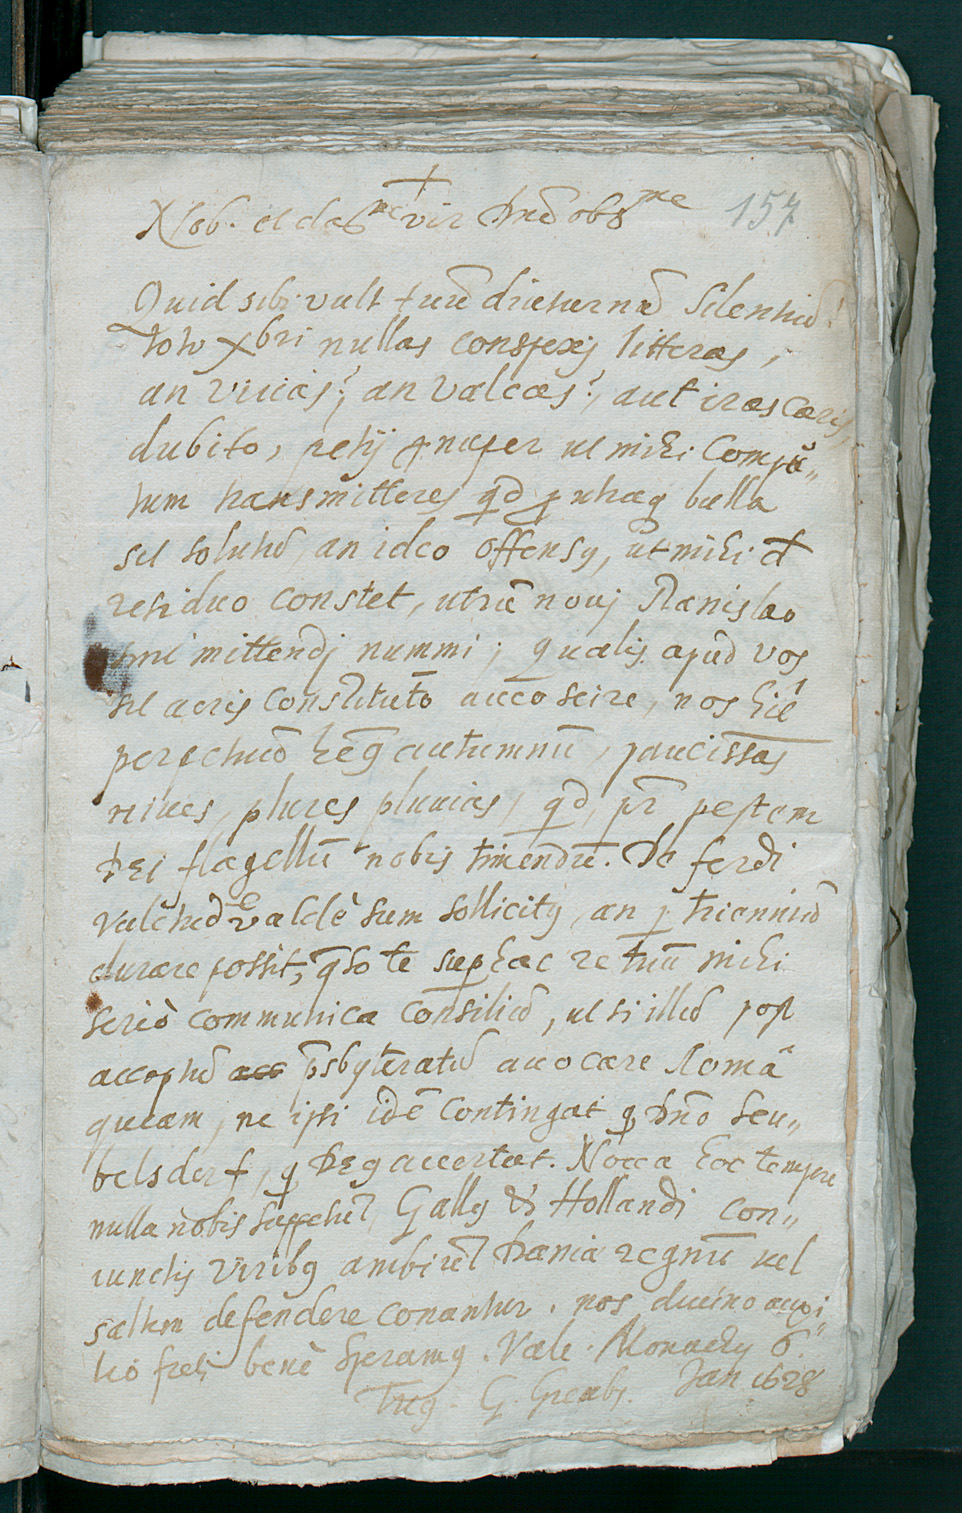 †
Nob. et clariss.me vir Dne obs.me 157
Quid sibi vult tuũ diuturnũ silentiũ?
toto Xbri nullas conspexi litteras,
an vivas? an valeas? aut irascaris,
dubito, petij nuper ut mihi compu„
tum transmitteres qd p bulla
sit solutũ, an ideo offensus, ut mihi d
residuo constet, utrũ novi Stanislao
mittendi nummi; qualis apud vos
sit aeris constitutio aveo scire, nos hic
perpetuũ autumnũ, paucissas
nives, plures pluvias, qd pestem
DEI flagellũ nobis timendũ. De ferdi
valetud valdè sum sollicitus, an p trienniũ
durare possit, qso te sup hac re tuũ mihi
seriò communica consiliũ, ut si illũ post
acceptũ psbyteratũ avocare Româ
queam, ne ipsi idẽ contingat q Dño Seu„
belsderf, q Deus avertat. Nova hoc tempore
nulla nobis suppetũt, Gallus & Hollandi con„
iunctis viribus Daniæ regnũ vel
saltem defendere conantur. nos divino auxi„
lio freti benè speramus. Vale. Monachij 6.
Jan. 1628
Tuus. G.